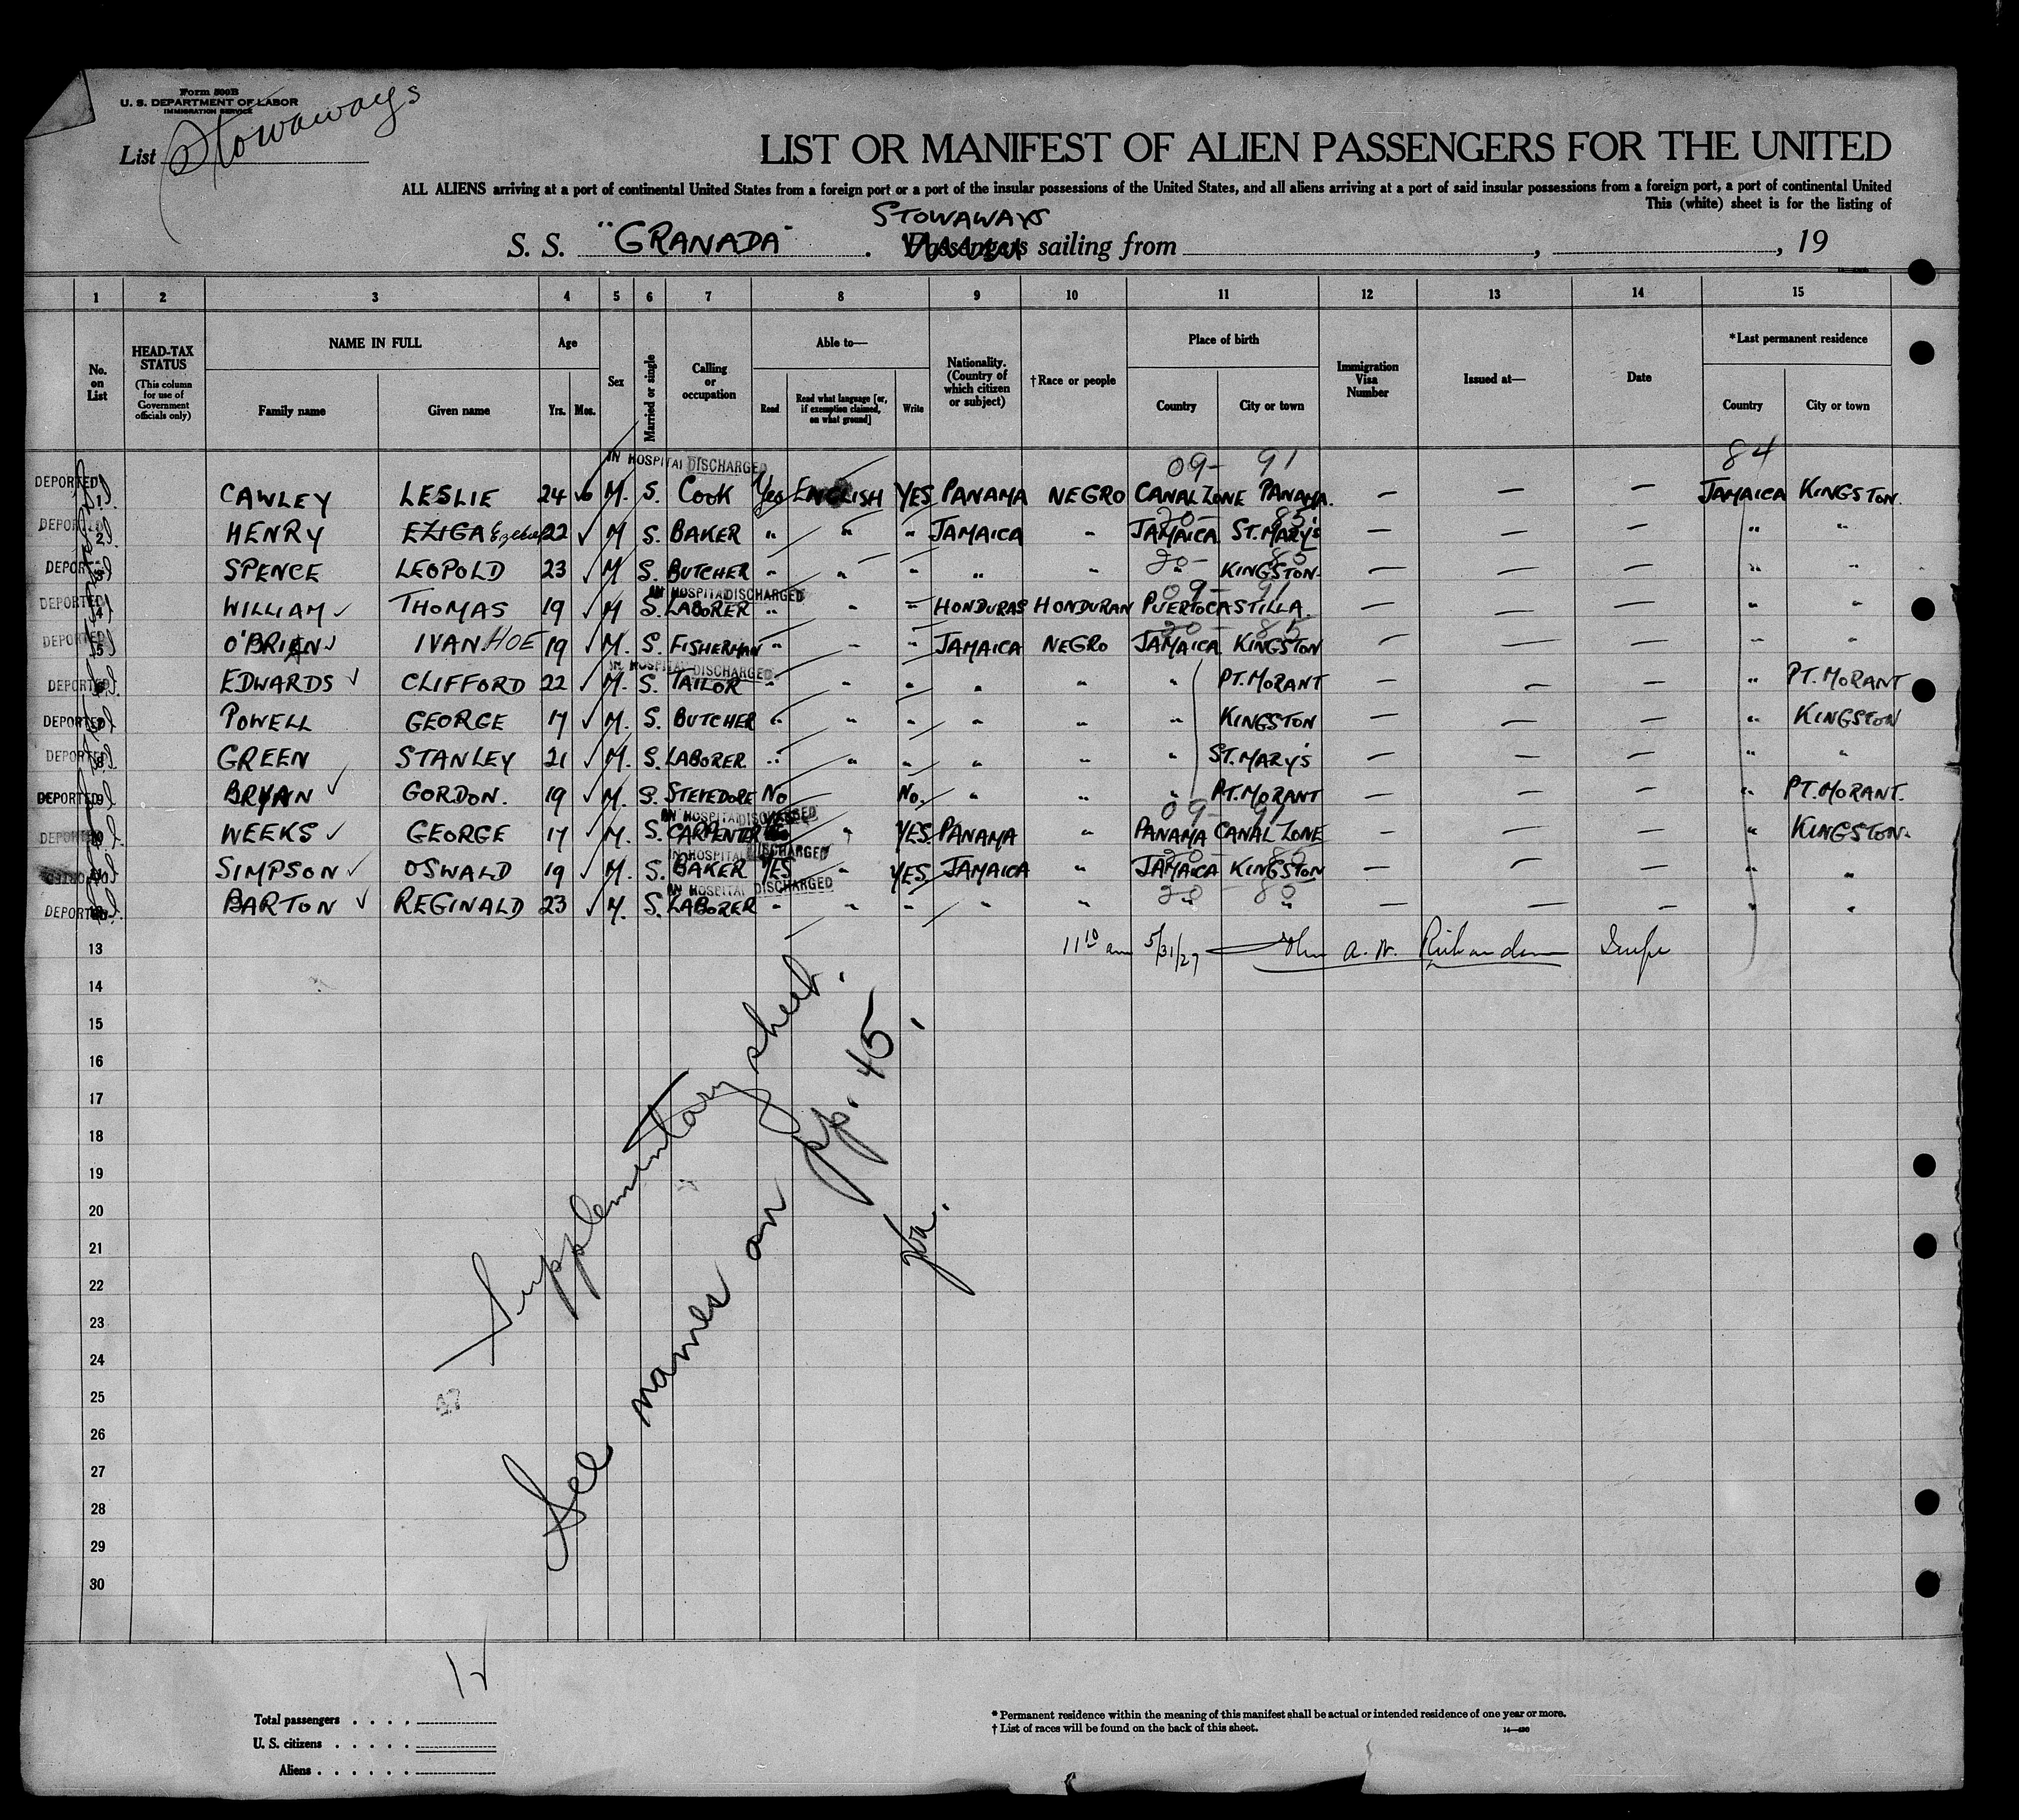 Form 500B
U. S. DEPARTMENT OF LABOR
IMMIGRATION SERVICE
List Stowaways
LIST OR MANIFEST OF ALIEN PASSENGERS FOR THE UNITED
ALL ALIENS arriving at a port of continental United States from a foreign port or a port of the insular possessions of the United States, and all aliens arriving at a port of said insular possessions from a foreign port, a port of continental United
This (white) sheet is for the listing of
STOWAWAYS
S. S. "GRANADA" . Passengers sailing from , , 19
1 2 3 4 5 6 7 8 9 10 11 12 13 14 15
No. on List
HEAD-TAX STATUS (This column for use of Government officials only)
NAME IN FULL
Family name
Given name
Age
Yrs. Mos.
Sex
Married or single
Calling or occupation
Able to—
Read
Read what language [or, if exemption claimed, on what ground]
Write
Nationality. (Country of which citizen or subject)
†Race or people
Place of birth
Country
City or town
Immigration Visa Number
Issued at—
Date
*Last permanent residence
Country
City or town
IN HOSPITAL DISCHARGED 09- 91 84
DEPORTED 1 CAWLEY LESLIE 24 M. S. COOK Yes ENGLISH YES PANAMA NEGRO CANAL ZONE PANAMA. — — — JAMAICA KINGSTON.
20- 85
DEPORTED 2 HENRY EZIGA 22 M S. BAKER " " " JAMAICA " JAMAICA ST. MARY'S — — — " "
20- 85
DEPORTED 3 SPENCE LEOPOLD 23 M S. BUTCHER " " " " " " KINGSTON — — — " "
IN HOSPITAL DISCHARGED 09- 91
DEPORTED 4 WILLIAM THOMAS 19 M S. LABORER " " " HONDURAS HONDURAN PUERTO CASTILLA. — — — " "
20- 85
DEPORTED 5 O'BRIEN IVANHOE 19 M. S. FISHERMAN " " " JAMAICA NEGRO JAMAICA KINGSTON — — — " "
IN HOSPITAL DISCHARGED
DEPORTED 6 EDWARDS CLIFFORD 22 M. S. TAILOR " " " " " " PT. MORANT — — — " PT. MORANT
DEPORTED 7 POWELL GEORGE 17 M. S. BUTCHER " " " " " " KINGSTON — — — " KINGSTON
DEPORTED 8 GREEN STANLEY 21 M. S. LABORER " " " " " " ST. MARY'S — — — " "
DEPORTED 9 BRYAN GORDON. 19 M. S. STEVEDORE No No. " " " PT. MORANT — — — " PT. MORANT.
IN HOSPITAL DISCHARGED 09- 91
DEPORTED 10 WEEKS GEORGE 17 M. S. CARPENTER " YES. PANAMA " PANAMA CANAL ZONE — — — " KINGSTON.
IN HOSPITAL DISCHARGED 20- 85
DEPORTED 11 SIMPSON OSWALD 19 M. S. BAKER YES " YES. JAMAICA " JAMAICA KINGSTON — — — " "
IN HOSPITAL DISCHARGED 20 85
DEPORTED 12 BARTON REGINALD 23 M. S. LABORER " " " " " " " — — — " "
13 11 10 am 5/31/27 John A. W. Richardson
14
15
16
17
18
19
20
21
22
23
24
25
26
27
28
29
30
Supplementary sheet.
See names on pp. 45.
47
12
Total passengers . . . .
U. S. citizens . . . . .
Aliens . . . . . .
* Permanent residence within the meaning of this manifest shall be actual or intended residence of one year or more.
† List of races will be found on the back of this sheet.
14—430